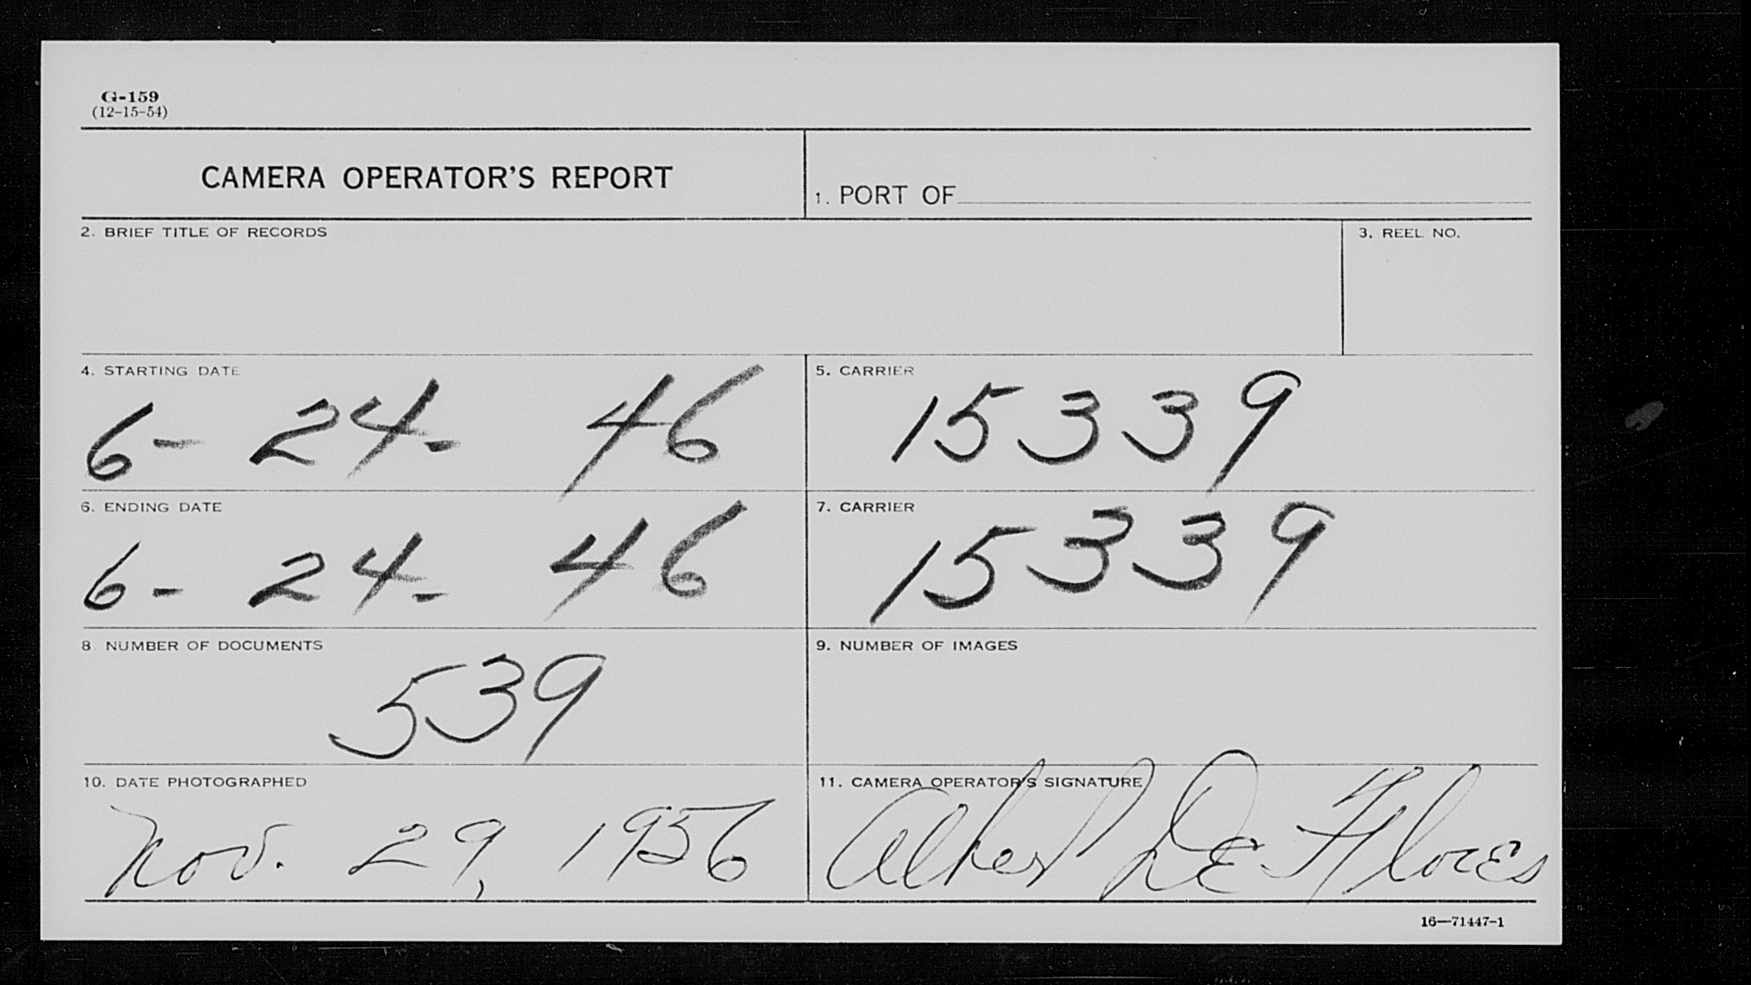 G-159
(12-15-54)
CAMERA OPERATOR'S REPORT
1. PORT OF
2. BRIEF TITLE OF RECORDS
3. REEL NO.
4. STARTING DATE
6- 24- 46
5. CARRIER
15339
6. ENDING DATE
6- 24- 46
7. CARRIER
15339
8 NUMBER OF DOCUMENTS
539
9. NUMBER OF IMAGES
10. DATE PHOTOGRAPHED
Nov. 29, 1956
11. CAMERA OPERATOR'S SIGNATURE
Albert De Flores
16—71447-1